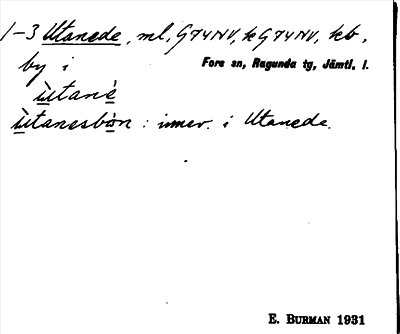 1-3 Utanede, ml, G74NV, k G74NV, kb,
by i Fors sn, Ragunda tg, Jämtl. l.
ùtanè
ùtanesbøn : innev. i Utanede.
E. BURMAN 1931